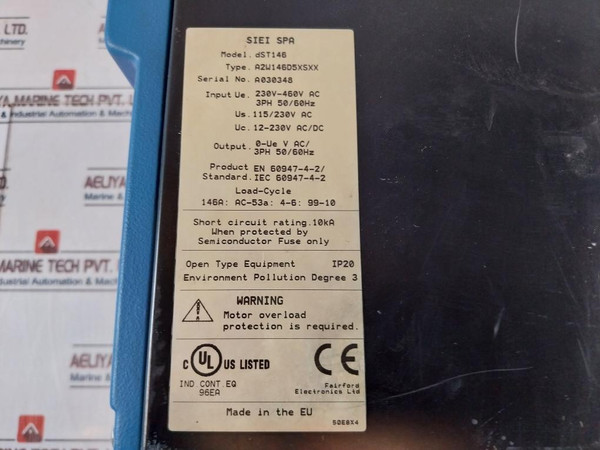 SIEI SPA
Model. dST146
Type. A2W146D5XSXX
Serial No. A030348
Input Ue. 230V-460V AC
3PH 50/60Hz
Us. 115/230V AC
Uc. 12-230V AC/DC
Output. 0-Ue V AC/
3PH 50/60Hz
Product EN 60947-4-2/
Standard. IEC 60947-4-2
Load-Cycle
146A: AC-53a: 4-6: 99-10
Short circuit rating.10kA
When protected by
Semiconductor Fuse only
Open Type Equipment IP20
Environment Pollution Degree 3
WARNING
Motor overload
protection is required.
C UL US LISTED CE
IND.CONT.EQ
96EA
Fairford
Electronics Ltd
Made in the EU
50E8X4
LTD.
chinery
YA MARINE TECH PVT. L
& Industrial Automation & Machi
AELIYA
Marine &
MARINE TECH PVT. LT
Industrial Automation & Machinery
AELIYA
Marine & I